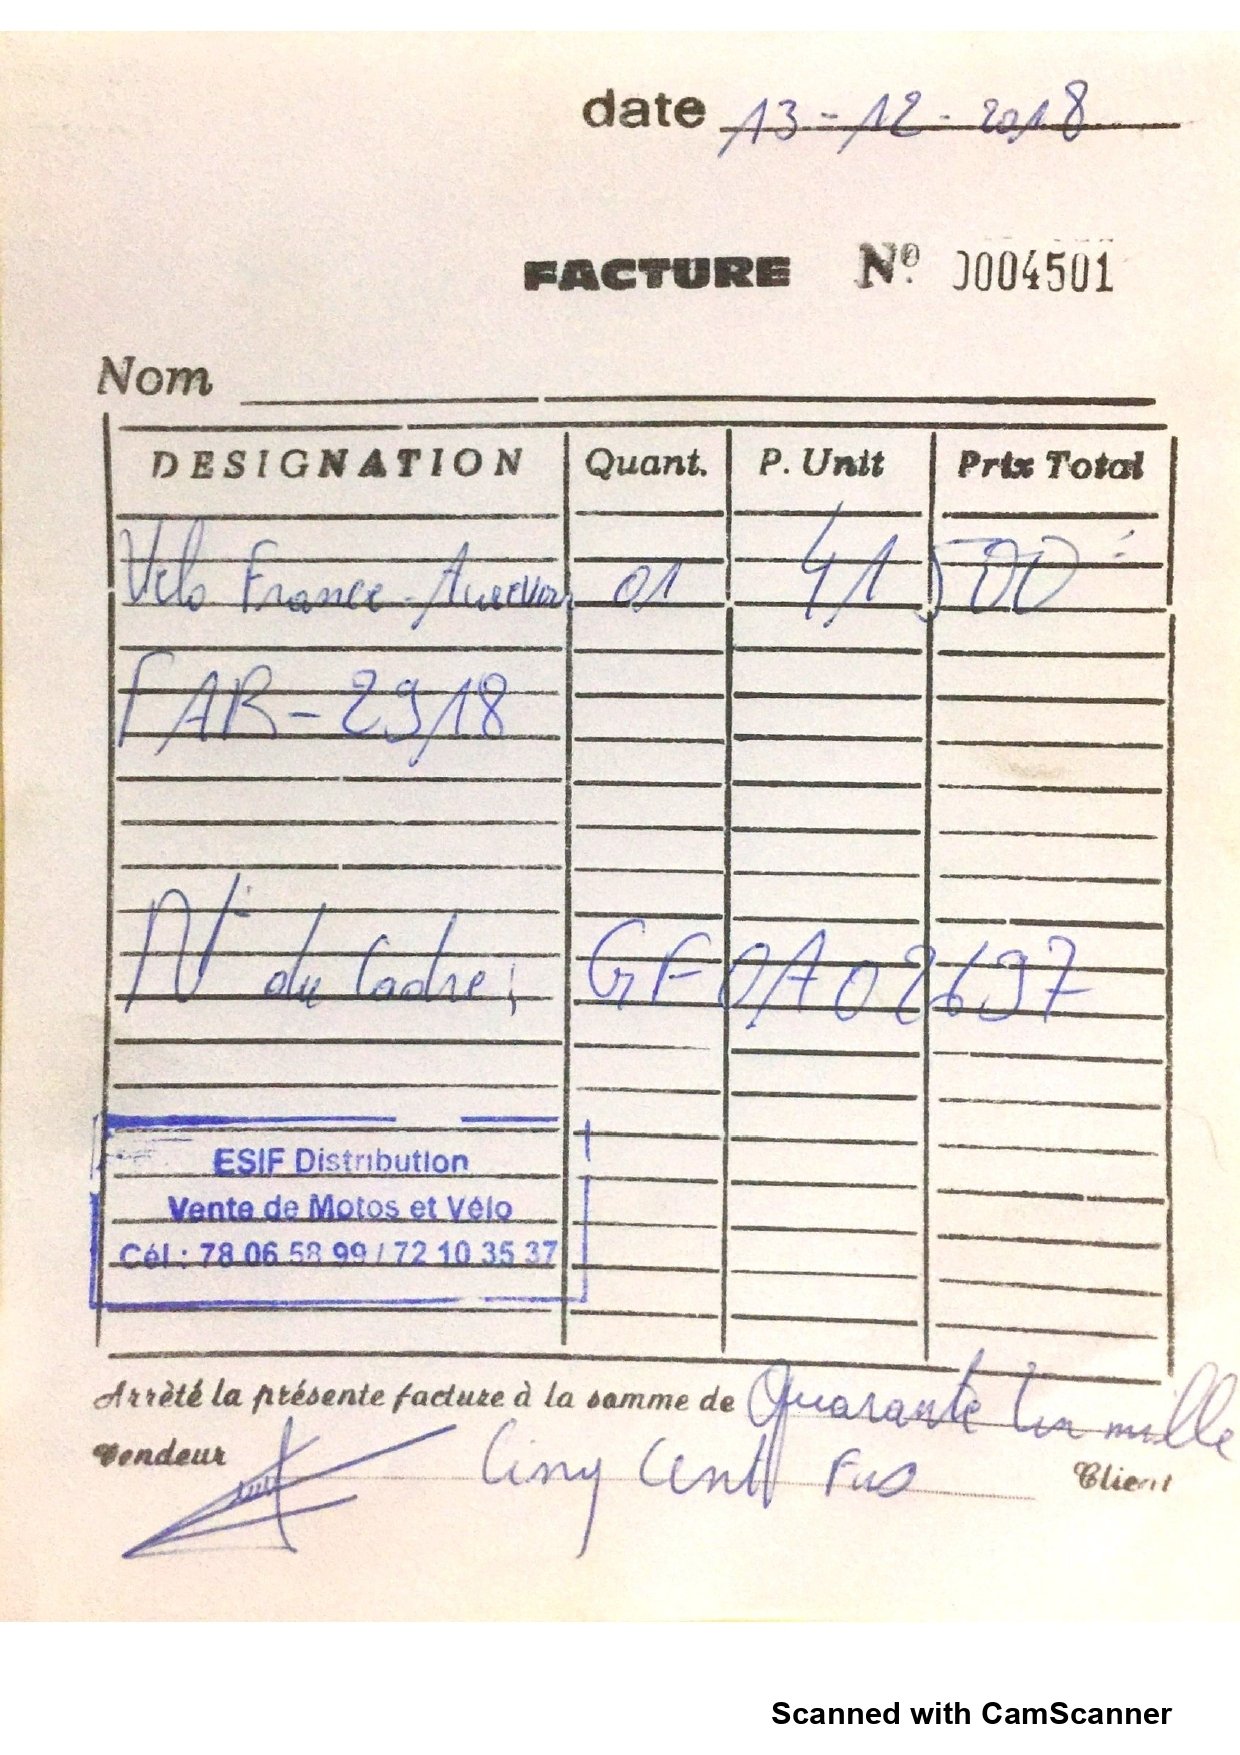 date 13-12-2018
FACTURE Nº 0004501
Nom
DESIGNATION Quant. P. Unit Prix Total
Vélo France- 01 41 500
FAR-2918
N° du Cadre: GF0A02697
ESIF Distribution
Vente de Motos et Vélo
Cél : 78 06 58 99 / 72 10 35 37
Arrêté la présente facture à la somme de Quarante Un mille
Vendeur Cinq Cent Client
Scanned with CamScanner